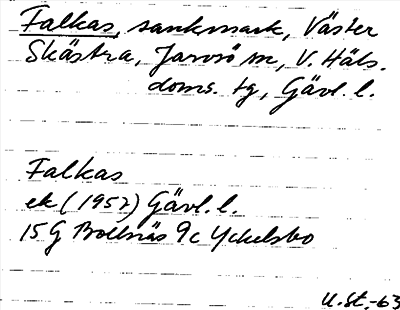 Falkas, sankmark, Väster
Skästra, Järvsö sn, V. Häls.
doms. tg, Gävl. l.
Falkas
ek (1952) Gävl. l.
15G Bollnäs 9c Yckelsbo
U.St.-63